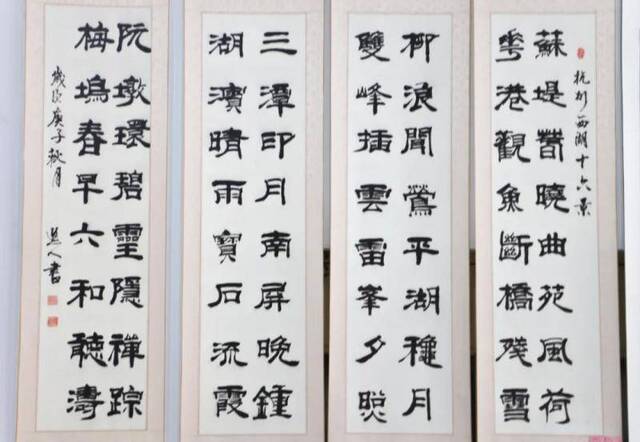 杭州西湖十六景
蘇堤春曉曲苑風荷
花港觀魚斷橋殘雪
柳浪聞鶯平湖穐月
雙峰插雲雷峯夕照
三潭印月南屏晚鍾
湖濱晴雨寶石流霞
阮墩環碧靈隱禪踪
梅塢春早六和聽濤
歲次庚子秋月 人書